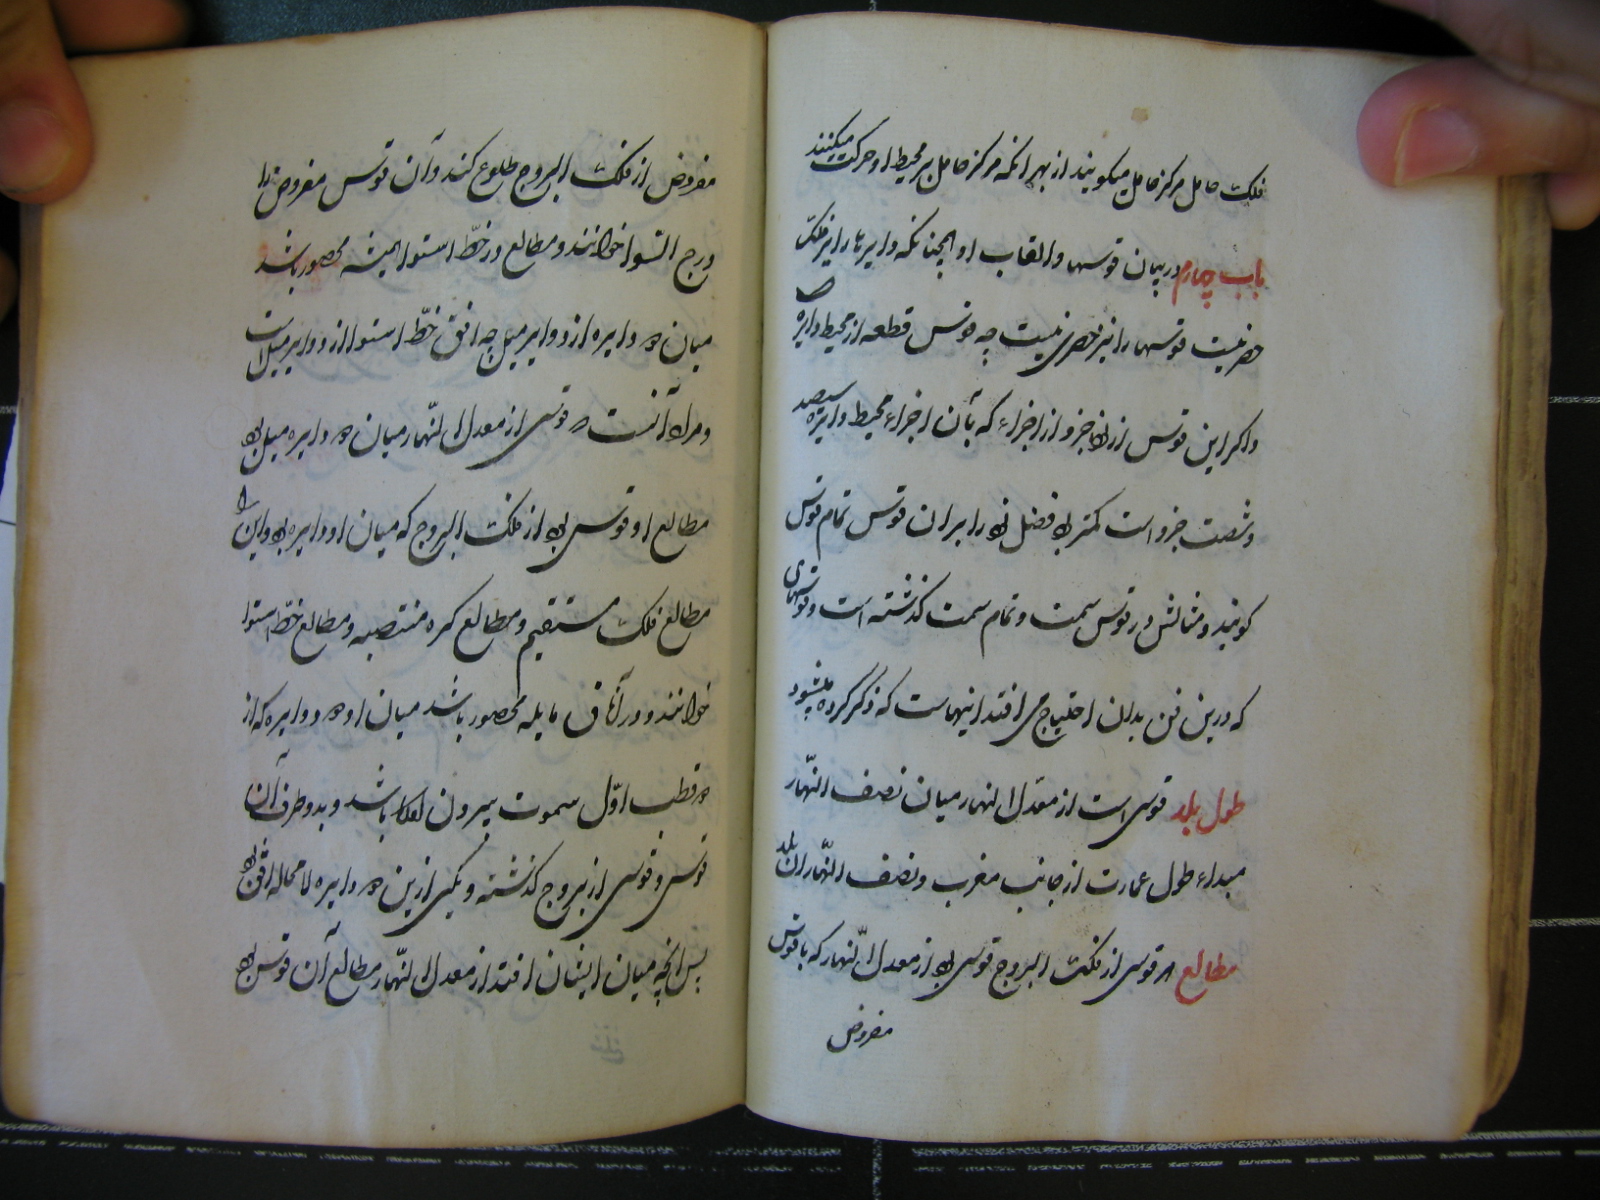 فلک حامل مرکز حامل میکویند از بهر انکه مرکز حامل بر محیط او حرکت میکنند
باب چهارم در بیان قوسها والقاب او همچنانکه دایرها را بر فلک
حصر نیست قوسها را نیز حصری نیست چه قوس قطعه از محیط دایره
واکر این قوس از نود جزو از اجزاء که بآن اجزاء محیط دایره سیصد
وشصت جزو است کمتر بود فضل نود را بر ان قوس تمام قوس
کویند و مثالش در قوس سمت و تمام سمت کذشته است و قوسهای
که درین فن بدان احتیاج می افتد اینهاست که ذکر کرده میشود
طول بلد قوسی است از معدل النهار میان نصف النهار
مبداء طول عمارت از جانب مغرب ونصف النهار ان بلد
مطالع هر قوسی از فلک البروج قوسی بود از معدل النهار که با قوس
مفروض
مفروض از فلک البروج طلوع کند وآن قوس مفروض را
درج السوا خوانند ومطالع در خط استوا همیشه محصور باشد
میان دو دایره از دوایر میل چه افق خط استوا از دوایر میل است
ومراد آنست که قوسی از معدل النهار میان دو دایره میل بود
مطالع او قوسی بود از فلک البروج که میان او دو ایره بود واین را
مطالع فلک مستقیم ومطالع کره منتصبه ومطالع خط استوا
خوانند ودر آفاق مایله محصور باشد میان دو دایره که از
دو قطب اول سموت بیرون آمده باشد وبدو طرف آن
قوس وقوسی از بروج کذشته ویکی ازین دو دایره لا محاله افق بود
پس انچه میان ایشان افتد از معدل النهار مطالع آن قوس بود